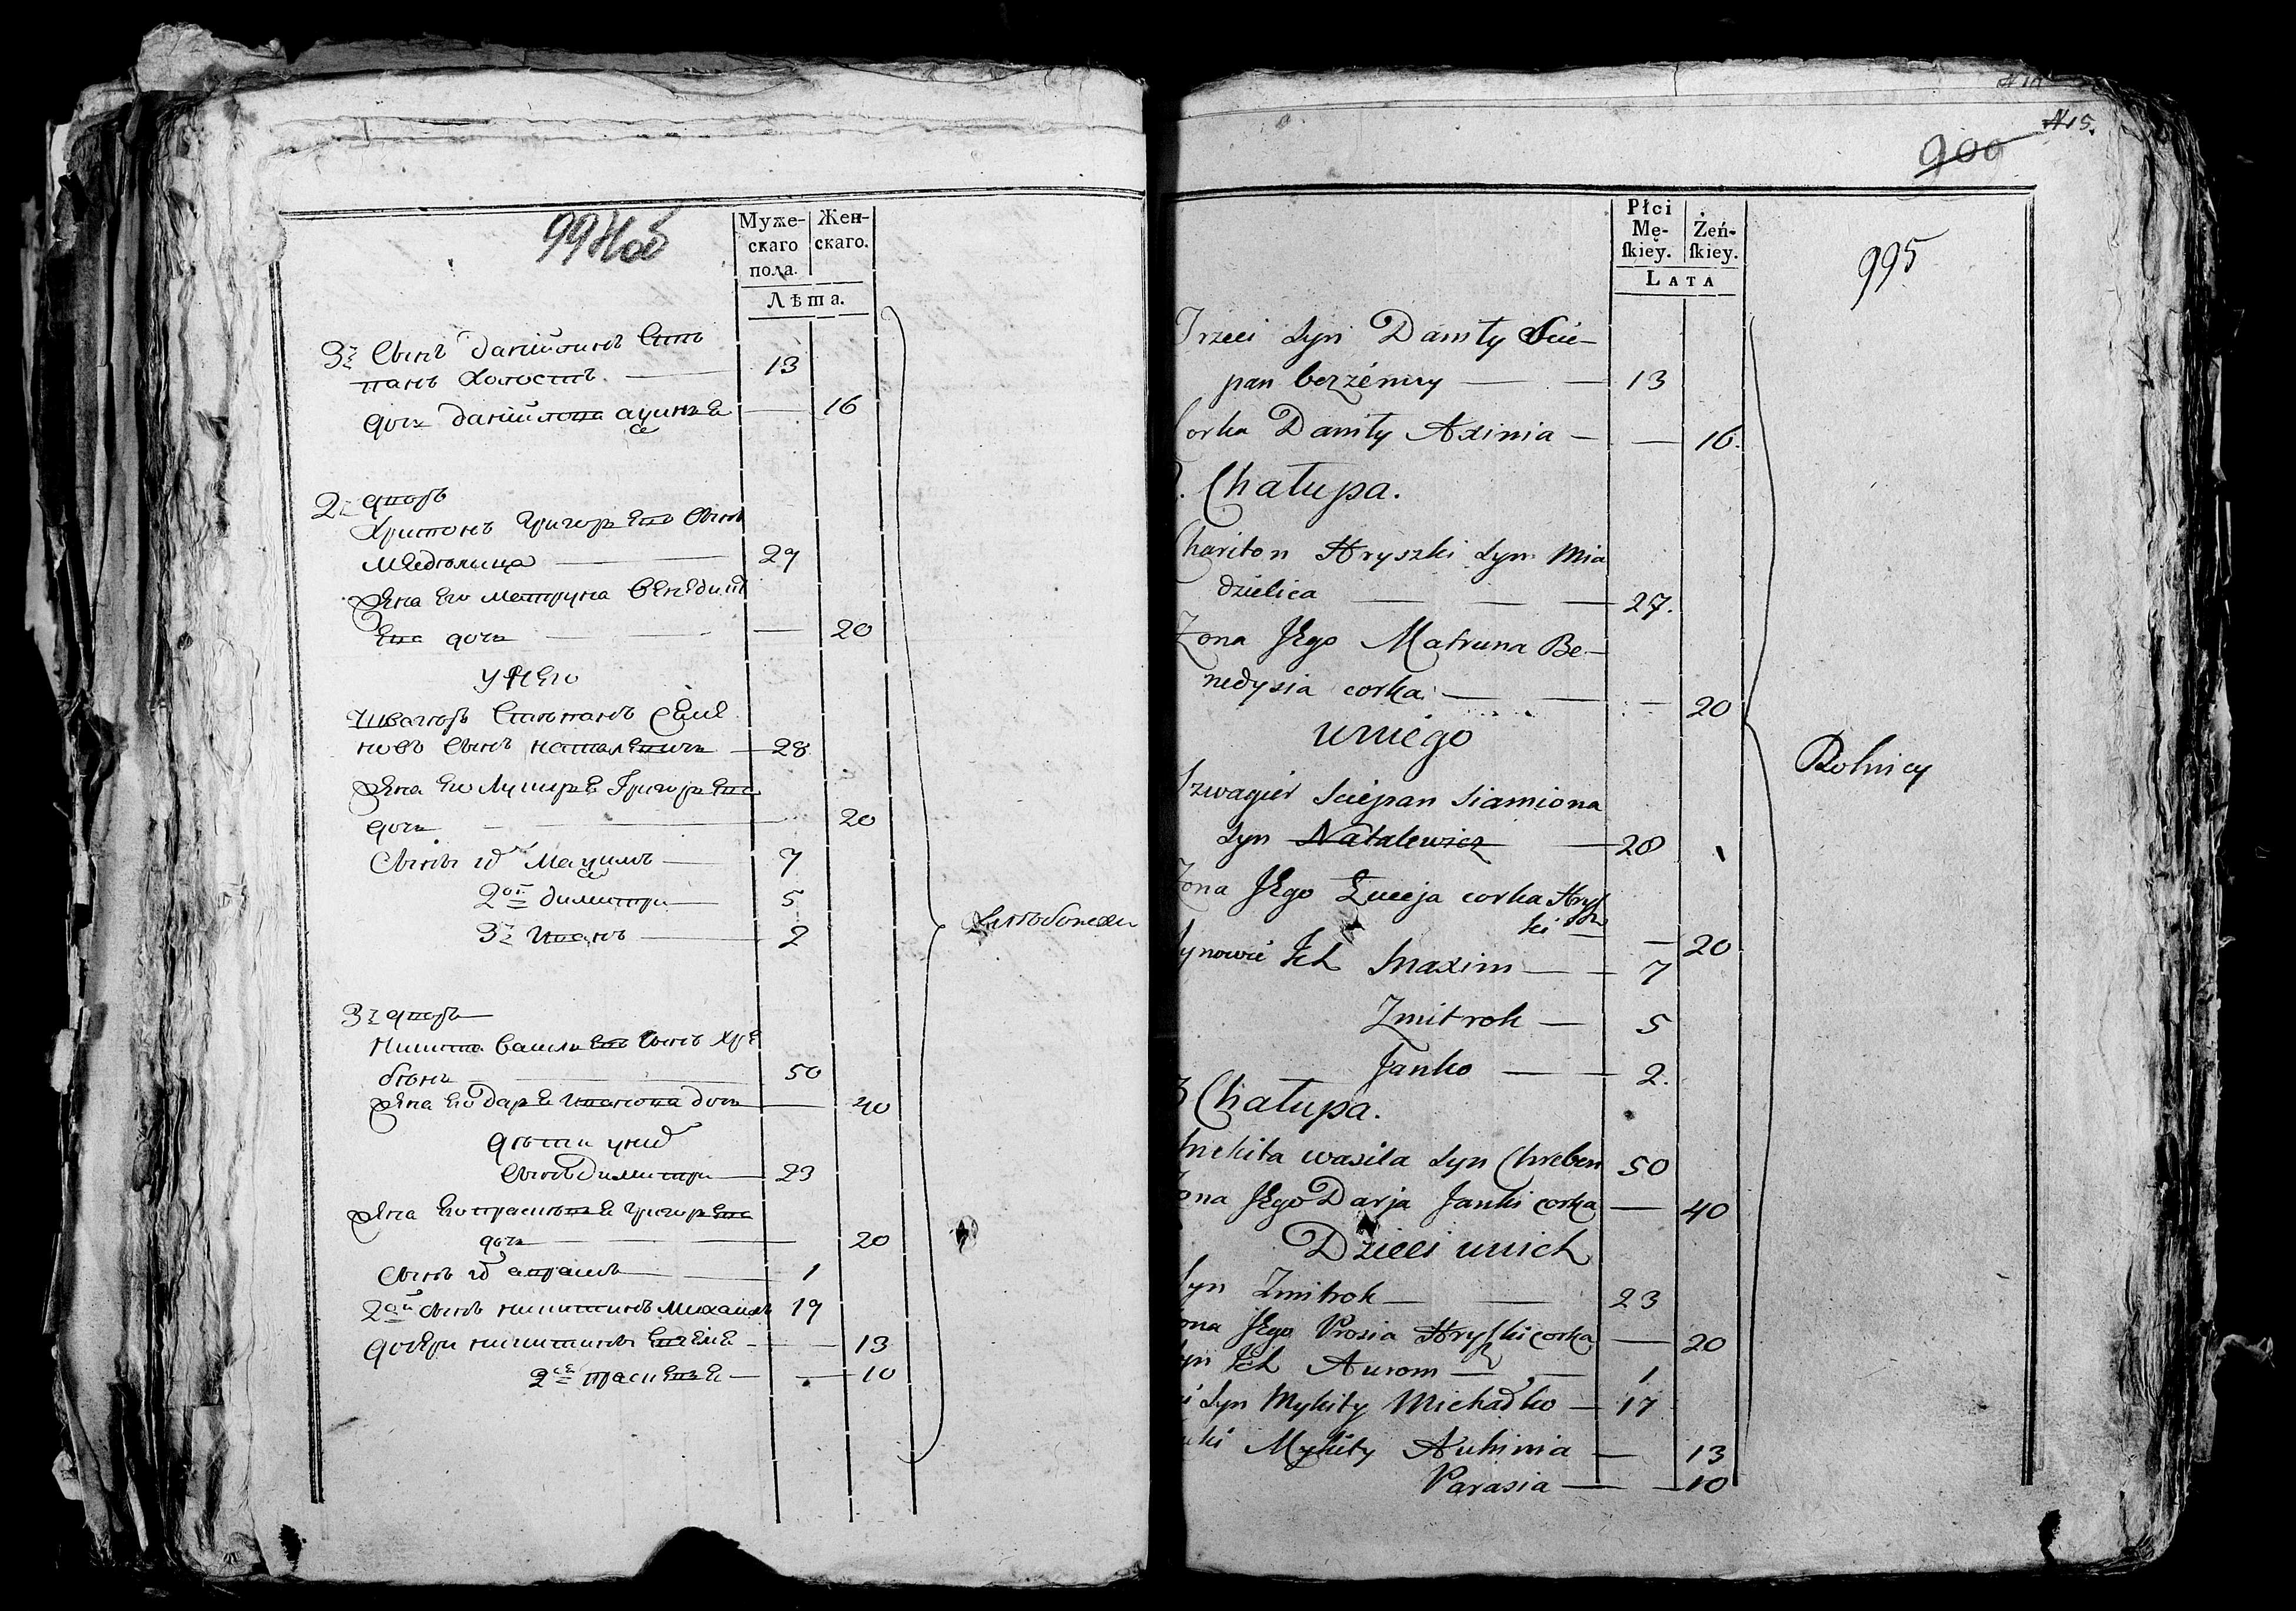 994 об
Муже-
скаго
пола.
Жен-
скаго.
Лѣта.
3й Сынъ данилинъ Сте
панъ Холостъ. — 13
дочь данилова аѯинья — 16
2й дворъ
Харитонъ Григорьевъ Сынъ
мядзелица — 29
Жена Его матруна Венедикт
ева дочь — 20
у Него
швагеръ Степанъ Семе
новъ Сынъ наталевичь — 28
Жена Его Луцерья Григорьева
дочь — 20
Сыны их Маѯимъ — 7
2ой димитри — 5
3й Иванъ — 2
3й дворъ
Никита Василь Евъ Сынъ Хре
бенъ — 50
Жена Его дарья Иванова дочь — 40
дѣти у них
Сынъ Димитри — 23
Жена Его прасковья Григорьева
дочь — 20
Сынъ их аврамъ — 1
2ой Сынъ никитинъ Михаилъ 19
дочери никитины — 13
2ая — 10
Хлебопашцы
№ 15.
900
Płci
Mę-
ſkiey.
Żeń-
ſkiey.
LATA
995
Trzeci Syn Daniły Scie-
pan bezżenny — 13
Corka Daniły Axinia — 16.
2. Chałupa.
Chariton Hryszki Syn Mia
dzielica — 27.
Zona JEgo Matruna Be-
nedysia corka — 20
u niego
Szwagier Sciepan Siamiona
Syn Natalewicz — 28
Zona JEgo Łuceja corka Hrysz
ki — 20
Synowie Ich Maxim — 7
Zmitrok — 5
Janko — 2.
Rolnicy
3 Chałupa.
Mekita wasila Syn Chreben 50
Zona JEgo Darja Janki corka — 40
Dzieci u nich
Syn Zmitrok — 23
Zona JEgo Prosia Hryszki corka — 20
Syn Ich Aurom — 1
i Syn Mykity Michałko — 17
Mykity Auhinia — 13
Parasia — 10